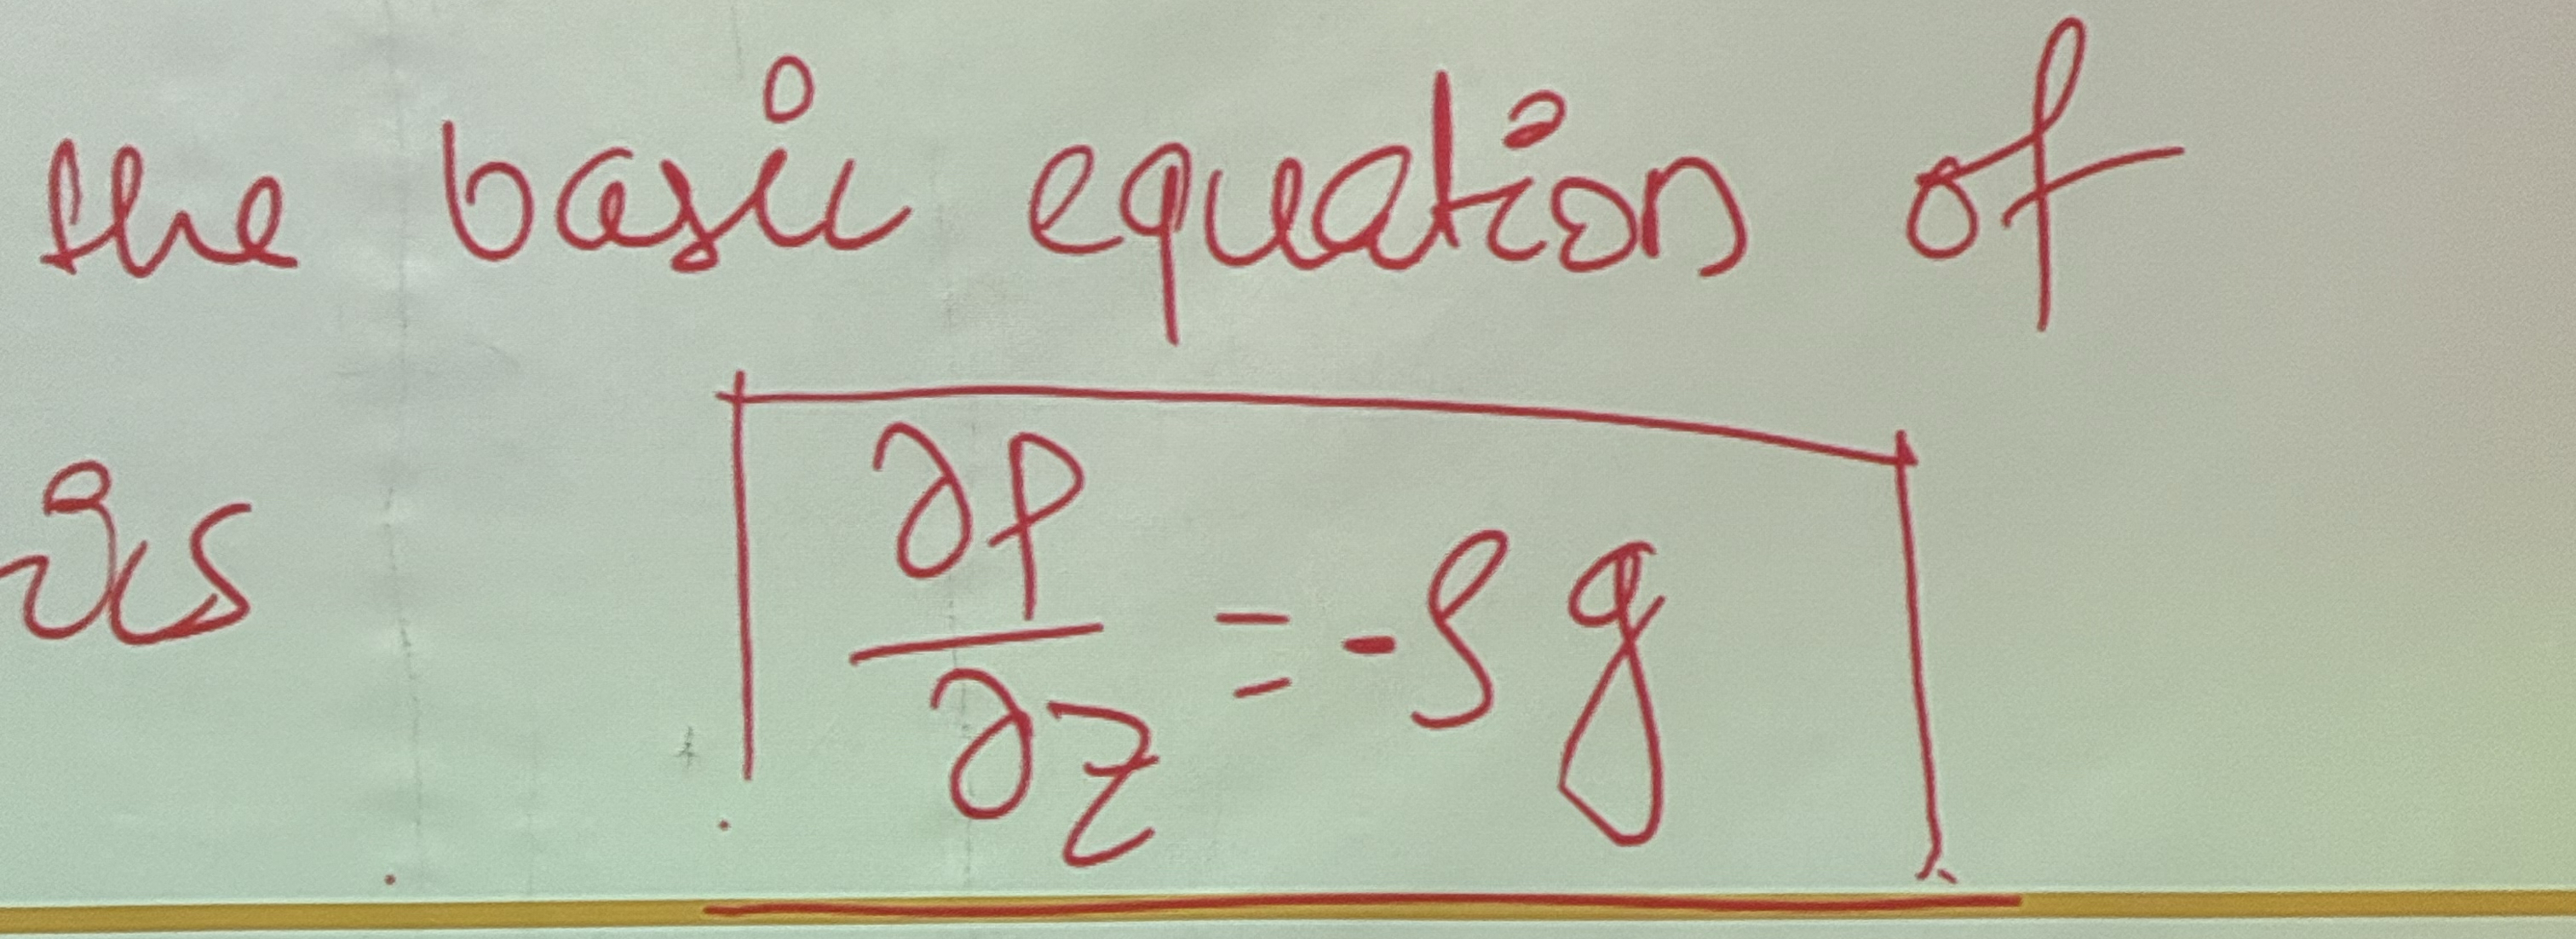 the basic equation of
is ∂p/∂z = -ρg